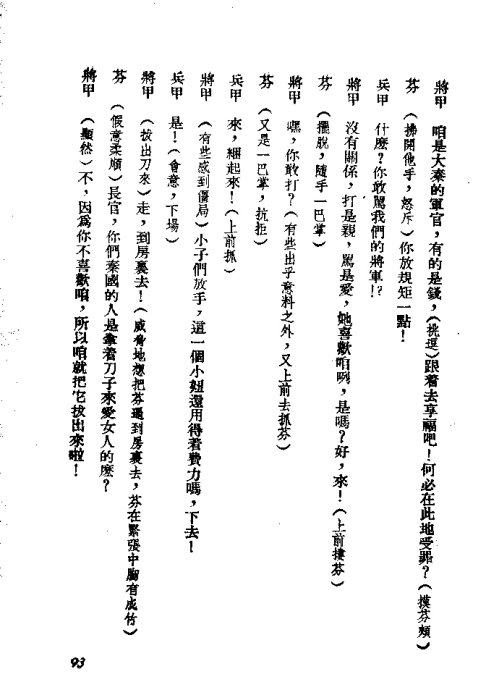 將甲　咱是大秦的軍官，有的是錢，（挑逗）跟着去享福吧！何必在此地受罪？（摸芬頰）
芬　（拂開他手，怒斥）你放規矩一點！
兵甲　什麼？你敢罵我們的將軍！？
將甲　沒有關係，打是親，罵是愛，她喜歡咱咧，是嗎？好，來！（上前摟芬）
芬　（擺脫，隨手一巴掌）
將甲　嘿，你敢打？（有些出乎意料之外，又上前去抓芬）
芬　（又是一巴掌，抗拒）
兵甲　來，綑起來！（上前抓）
將甲　（有些感到僵局）小子們放手，這一個小妞還用得着費力嗎，下去！
兵甲　是！（會意，下場）
將甲　（拔出刀來）走，到房裏去！（威脅地想把芬逼到房裏去，芬在緊張中胸有成竹）
芬　（假意柔順）長官，你們秦國的人是拿着刀子來愛女人的麼？
將甲　（顯然）不，因爲你不喜歡咱，所以咱就把它拔出來啦！
93